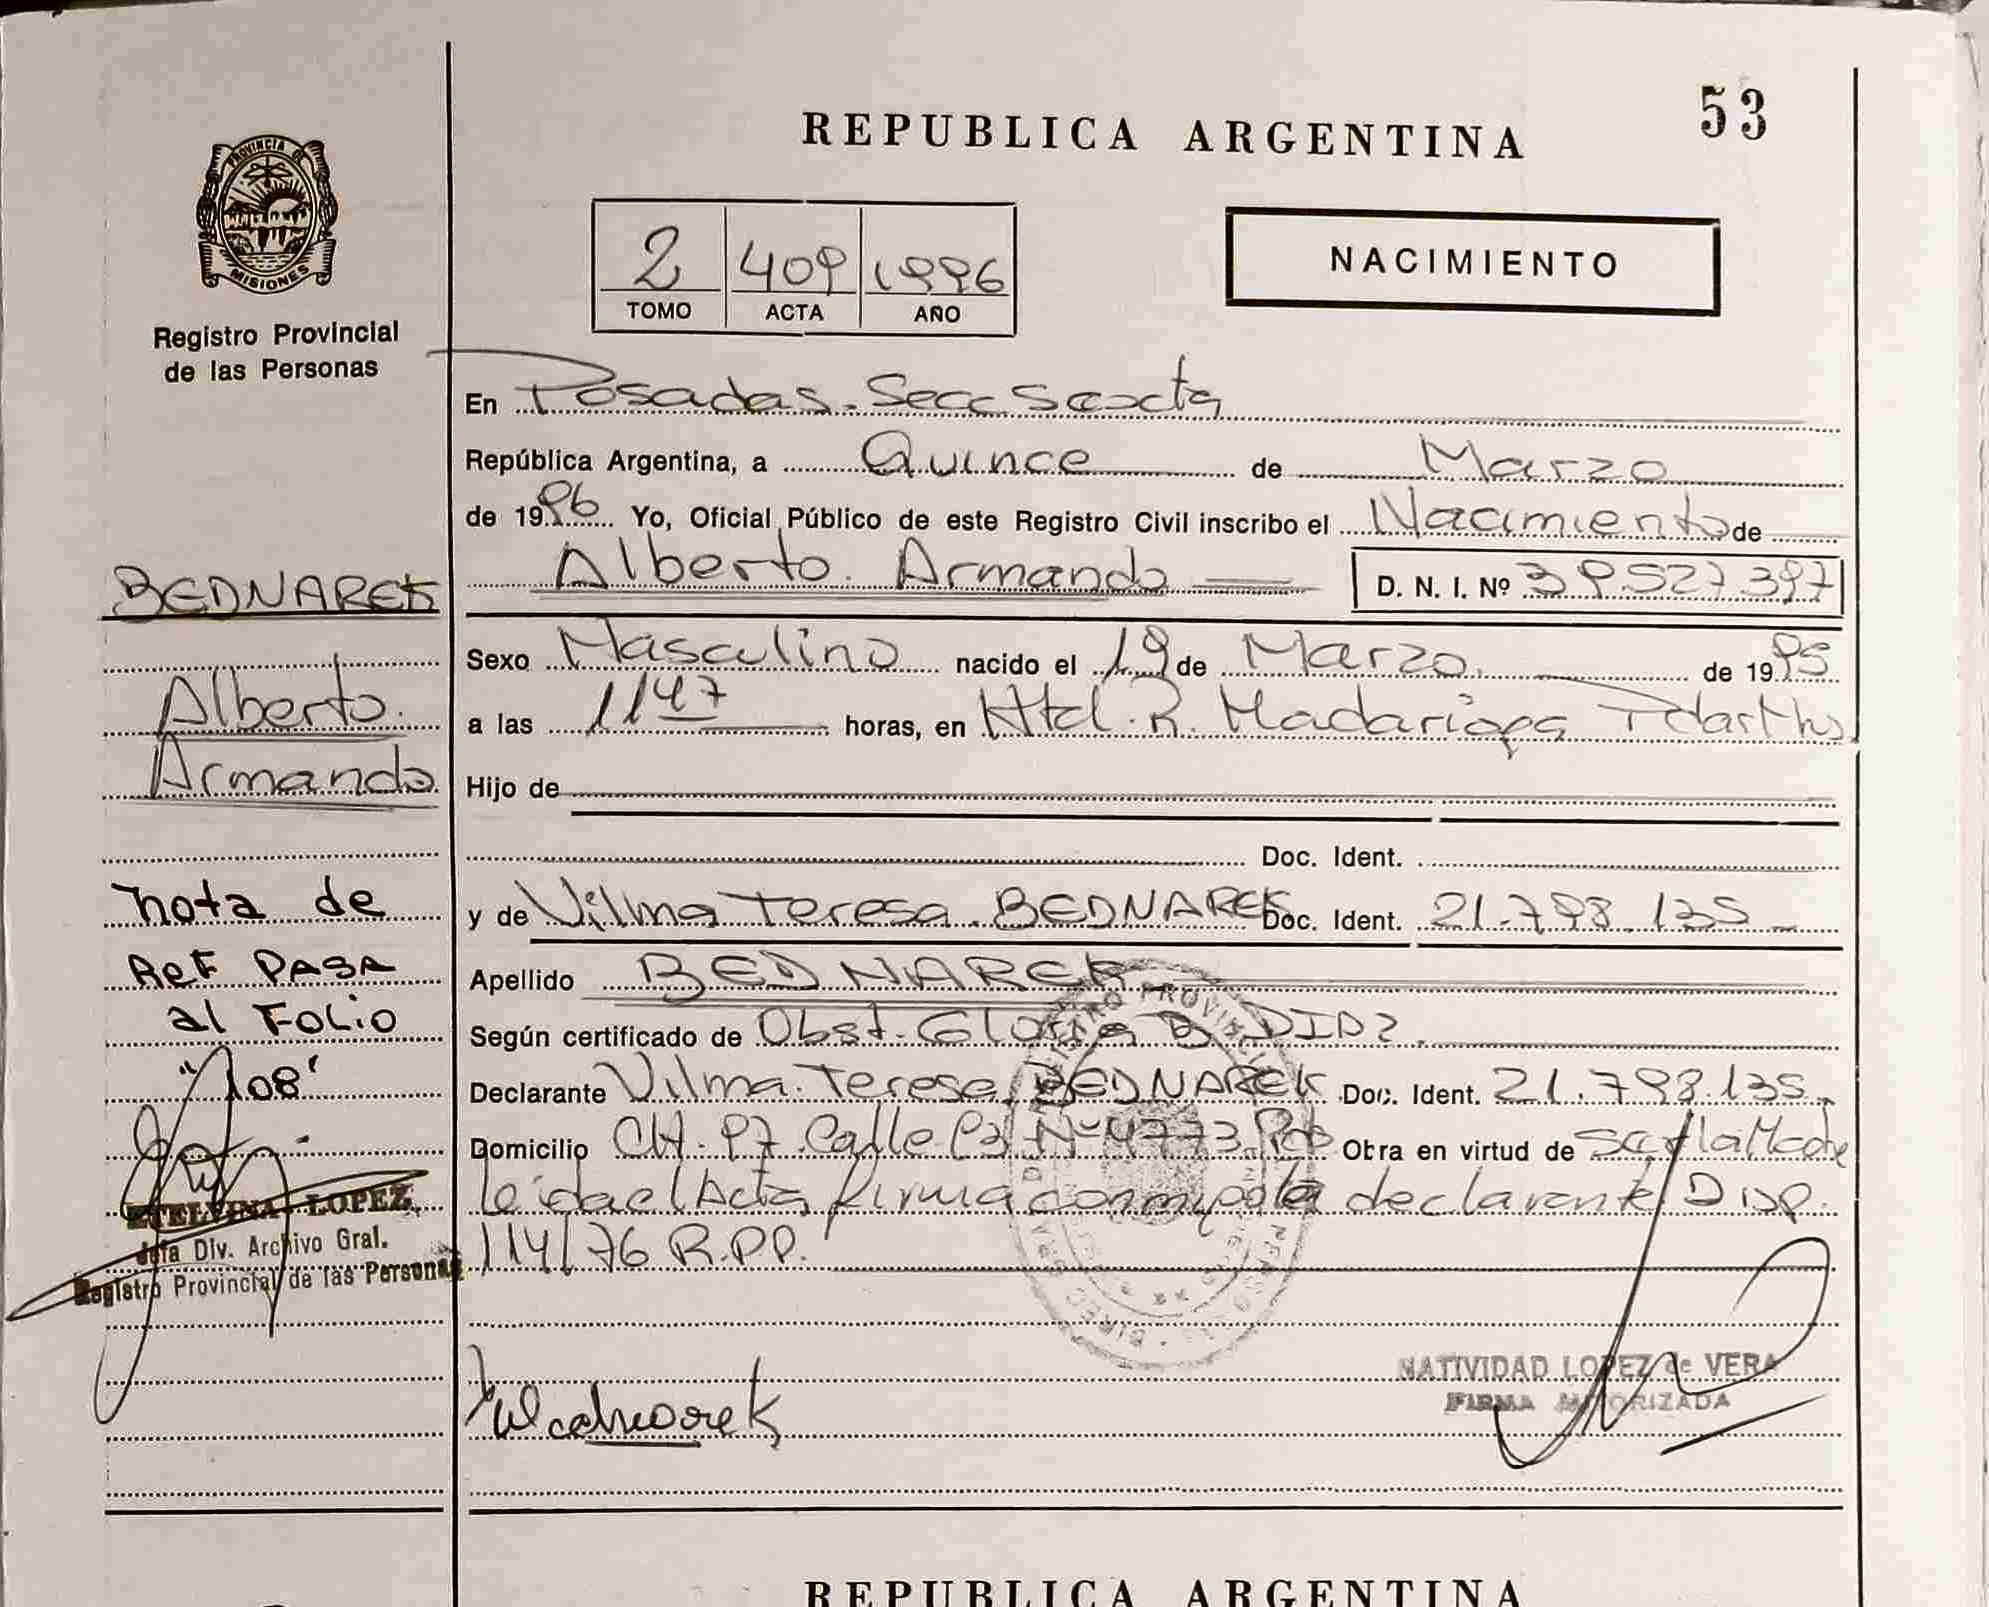 53
REPUBLICA ARGENTINA
PROVINCIA DE
MISIONES
Registro Provincial
de las Personas
2 409 1996
TOMO ACTA AÑO
NACIMIENTO
En Posadas. Secc Sexta
República Argentina, a Quince de Marzo
de 1996 Yo, Oficial Público de este Registro Civil inscribo el Nacimiento de
Alberto Armando D. N. I. Nº 39.527.397
Sexo Masculino nacido el 19 de Marzo de 1995
a las 1147 horas, en Htal. R. Madariaga
Hijo de
Doc. Ident.
y de Vilma Teresa BEDNAREK Doc. Ident. 21.798.135
Apellido BEDNAREK
Según certificado de Obst. Gloria B
Declarante Vilma Teresa BEDNAREK Doc. Ident. 21.798.135
Domicilio CH. 97 Calle Nº 4773 Pdas Obra en virtud de
leida el Acta firma conmigo la declarante Disp.
114/76 R.P.P.
BEDNAREK
Alberto
Armando
nota de
Ref PASA
al Folio
"108"
ETELVINA LOPEZ
Jefa Div. Archivo Gral.
Registro Provincial de las Personas
NATIVIDAD LOPEZ de VERA
FIRMA AUTORIZADA
REPUBLICA ARGENTINA